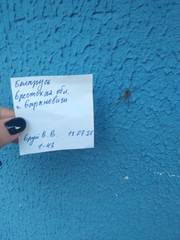 Беларусь
Брестская обл.
г. Барановичи
В. В. 13.07.20
1-43